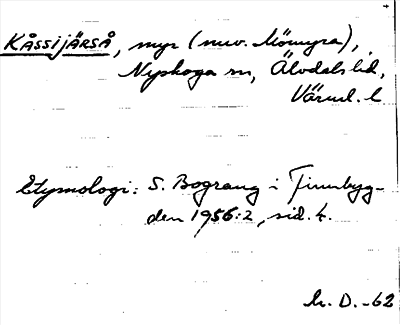 KÅSSIJÄRSÅ, myr (nuv. Mömyra),
Nyskoga sn, Älvdals hd,
Värml. l
Etymologi: S. Bograng i Finnbyg-
den 1956:2, sid. 4.
h. D. -62